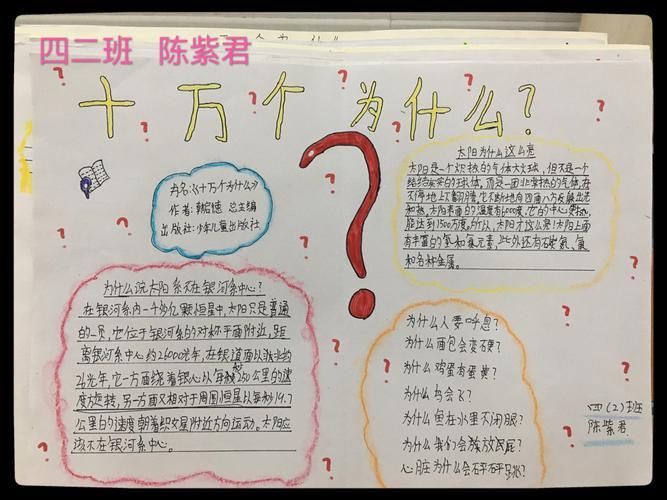 四二班 陈紫君
十万个为什么?
书名:《十万个为什么》
作者:韩启德 总主编
出版社:少年儿童出版社
太阳为什么这么亮
太阳是一个炽热的气体大火球,但不是一个
的球体,而是一团非常热的气体,在
不停地上下翻腾着,它不断地向四面八方反射出光
和热,太阳表面的温度有6000度,它的中心更热,
能达到1500万度,所以,太阳才这么亮!太阳上面
有丰富的氢和氦元素,此外还有碳、氮、氧
和各种金属。
为什么说太阳系不在银河系中心?
在银河系内一千多亿颗恒星中,太阳只是普通
的一员,它位于银河系的对称平面附近,距
离银河系中心约26000光年,在银道面以北约
26光年,它一方面绕着银心以每秒250公里的速
度旋转,另一方面又相对于周围恒星以每秒19.7
公里的速度朝着织女星附近方向运动。太阳应
该不在银河系中心。
为什么人要呼息?
为什么面包会变硬?
为什么鸡蛋有蛋黄?
为什么鸟会飞?
为什么鱼在水里不闭眼?
为什么我们会放放屁?
心脏为什么会怦怦跳?
四(2)班
陈紫君